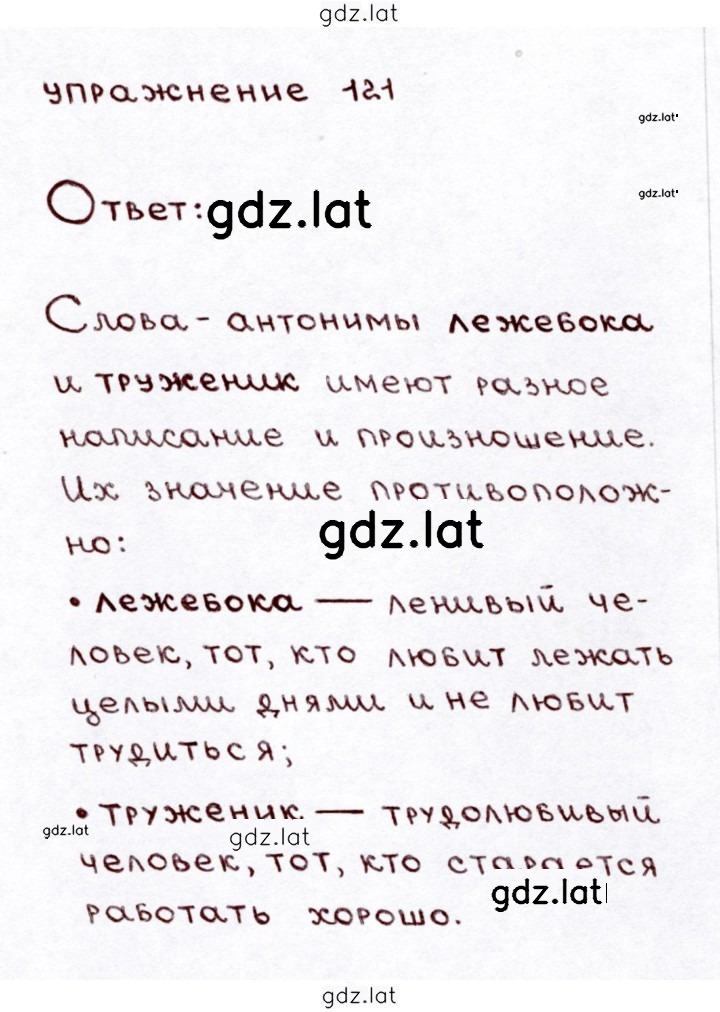 gdz.lat
упражнение 121
gdz.lat
gdz.lat
Ответ: gdz.lat
Слова - антонимы лежебока
и труженик имеют разное
написание и произношение.
Их значение противополож-
gdz.lat
но:
• лежебока — ленивый че-
ловек, тот, кто любит лежать
целыми днями и не любит
трудиться;
• труженик — трудолюбивый
gdz.lat
gdz.lat
человек, тот, кто старается
gdz.lat
работать хорошо.
gdz.lat